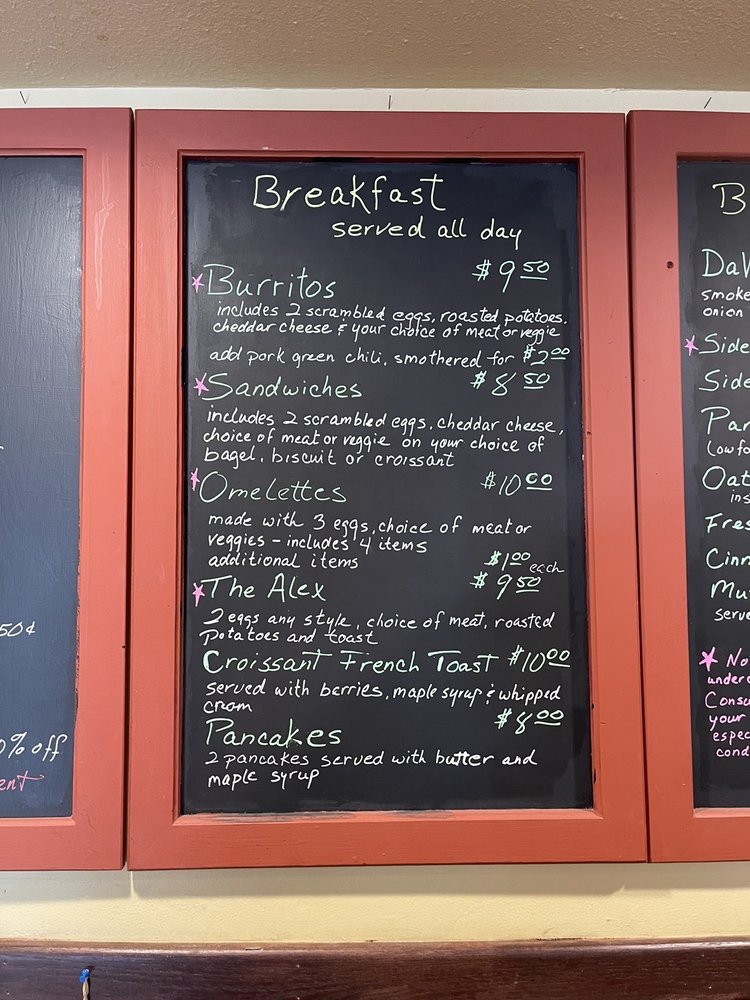 Breakfast
served all day
★ Burritos $9 50
includes 2 scrambled eggs, roasted potatoes.
cheddar cheese & your choice of meat or veggie
add pork green chili, smothered for $2 00
★ Sandwiches $8 50
includes 2 scrambled eggs, cheddar cheese,
choice of meat or veggie on your choice of
bagel, biscuit or croissant
★ Omelettes $10 00
made with 3 eggs, choice of meat or
veggies - includes 4 items
additional items $1 00 each
★ The Alex $9 50
2 eggs any style, choice of meat, roasted
potatoes and toast
Croissant French Toast $10 00
served with berries, maple syrup & whipped
cream
Pancakes $8 00
2 pancakes served with butter and
maple syrup
50¢
0% off
B
smoke
onion
★ Side
Side
★ No
your